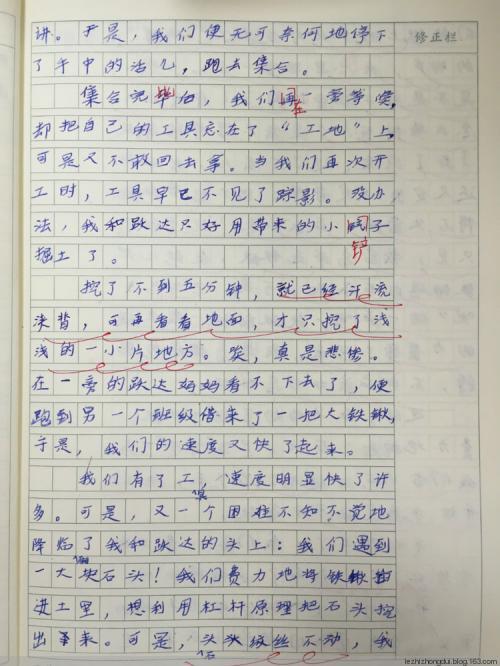 讲。于是，我们便无可奈何地停下 修正栏
了手中的活儿，跑去集合。
集合完毕后，我们再一等等候，
却把自己的工具忘在了“工地”上，
可是又不敢回去拿。当我们再次开
工时，工具早已不见了踪影。没办
法，我和跃达只好用带来的小铲子
掘土了。
挖了不到五分钟，就已经汗流
浃背，可再看看地面，才只挖了浅
浅的一小片地方。唉，真是悲惨。
在一旁的跃达妈妈看不下去了，便
跑到另一个班级借来了一把大铁锹，
于是，我们的速度又快了起来。
我们有了工具，速度明显快了许
多。可是，又一个困难不知不觉地
降临了我和跃达的头上：我们遇到
一大块石头！我们费力地将铁锹插
进土里，想利用杠杆原理把石头挖
出来。可是，石头纹丝不动，我
lezhizhongdui.blog.163.com